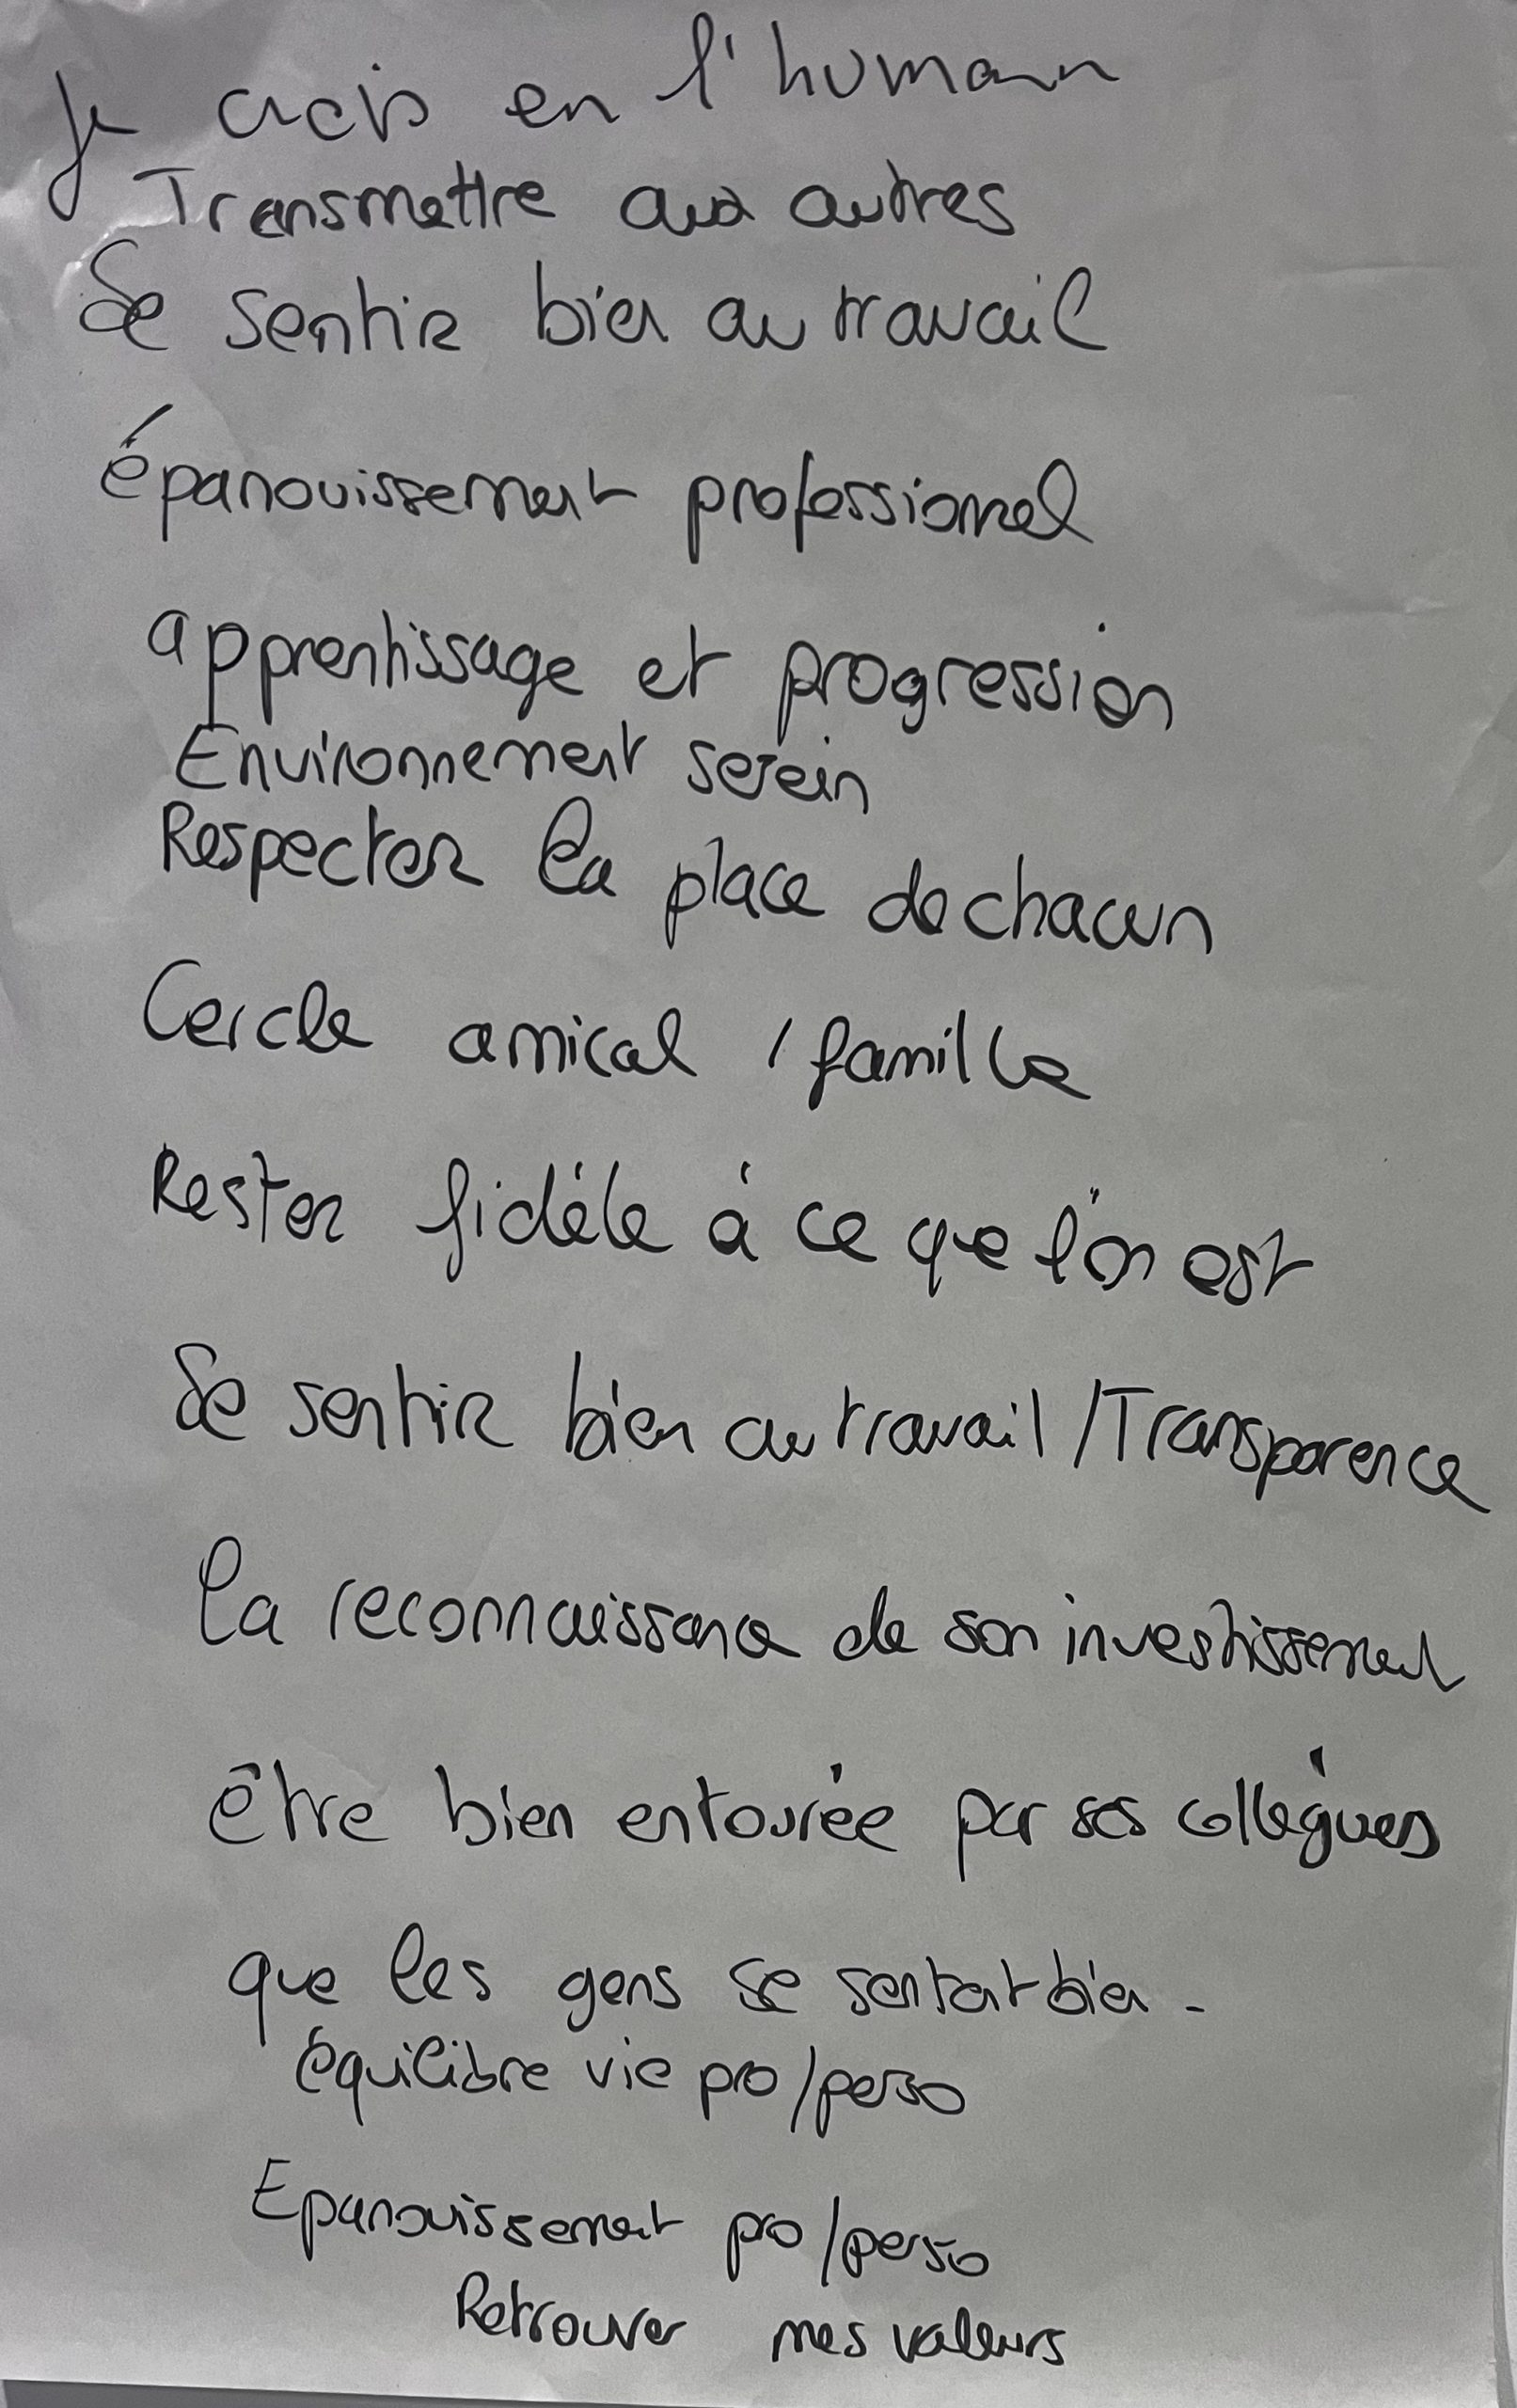 Je crois en l'humain
Transmettre aux autres
Se sentir bien au travail
épanouissement professionnel
apprentissage et progression
Environnement serein
Respecter la place de chacun
Cercle amical / famille
Rester fidèle à ce que l'on est
Se sentir bien au travail / Transparence
la reconnaissance de son investissement
être bien entourée par ses collègues
que les gens se sentent bien -
équilibre vie pro/perso
Epanouissement pro/perso
Retrouver mes valeurs